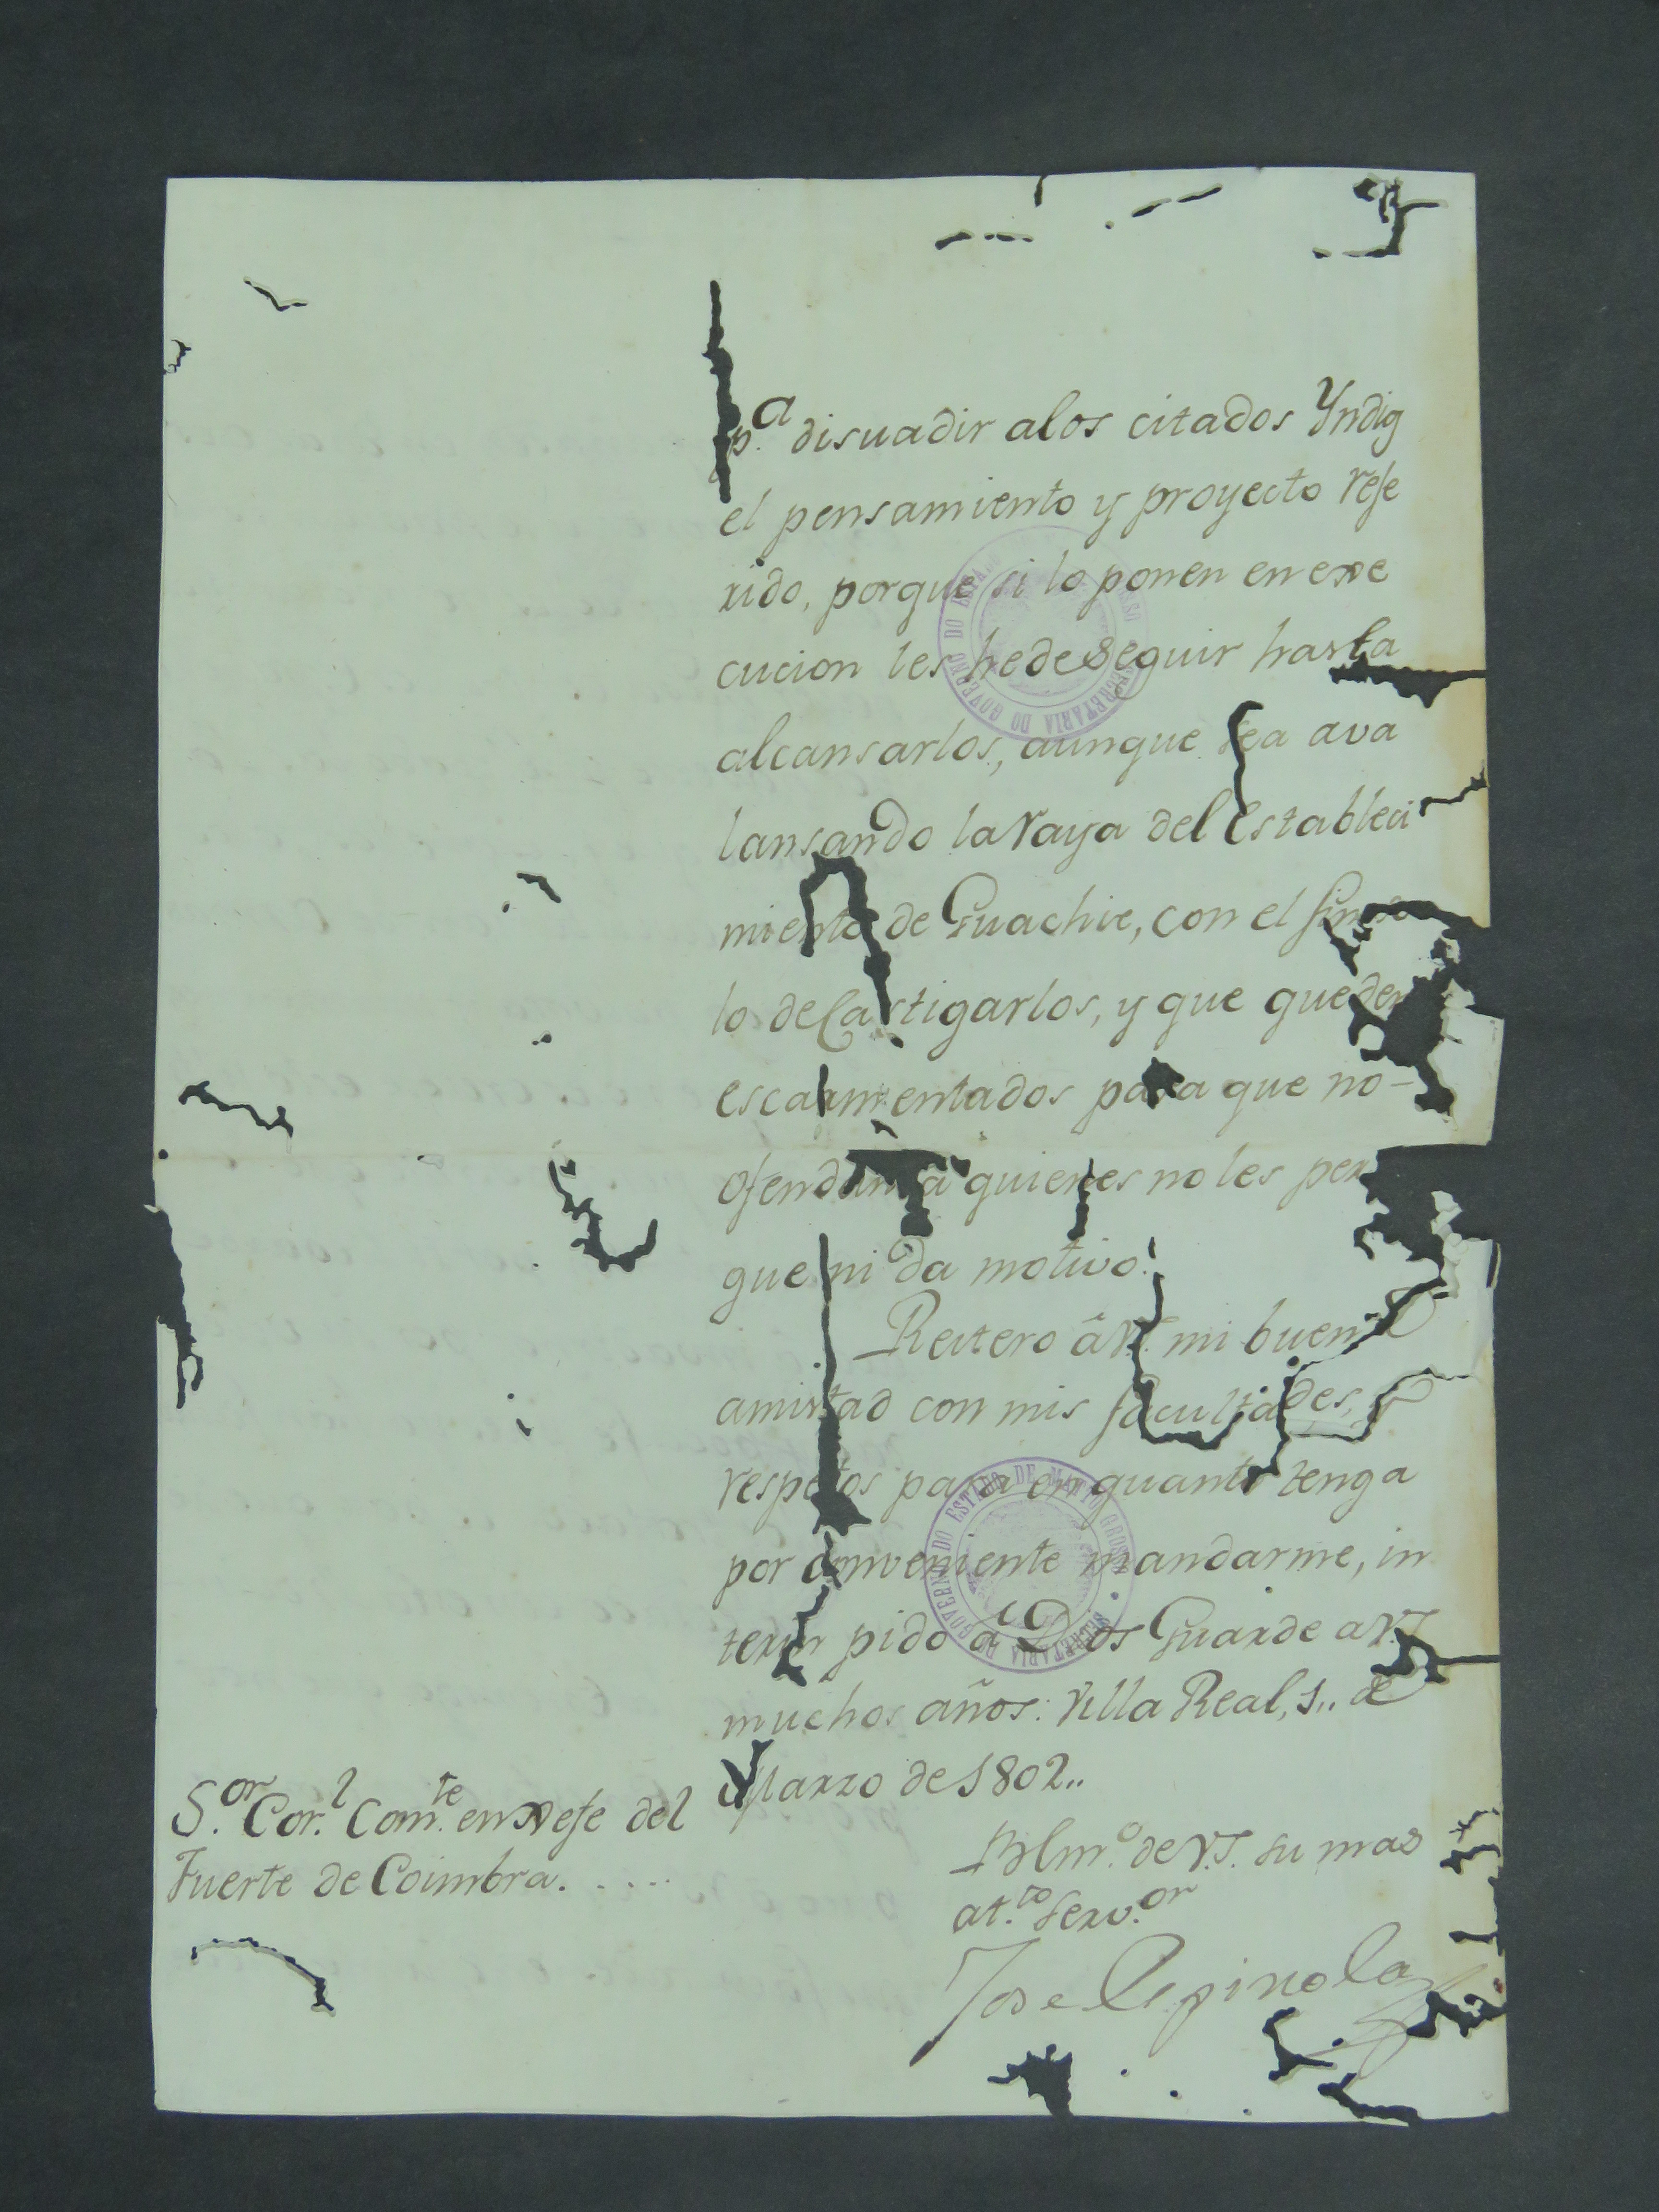 p.ª disuadir alos citados Yndig
el pensamiento y proyecto refe
rido, porque si lo ponen en exe
cucion les hede seguir hasta
alcansarlos, aunque sea ava
lansando la raya del Estableci
miento de Guachie, con el fin so
lo de Castigarlos, y que queden
escarmentados para que no-
ofendan a quienes no les per
gue ni da motivo.
Reitero â V.S. mi buena
amistad con mis facultades, y
respetos para en quanto tenga
por conveniente mandarme, in
terin pido a Dios Guarde a V.S.
muchos años: Villa Real, 1.. de
Marzo de 1802..
Blm.º de V.S. su mas
at.to Serv.or
Jose Espinola
S.or Cor.l Com.te en xefe del
Fuerte de Coimbra. . . . .
SECRETARIA DO GOVERNO DO ESTADO DE MATTO GROSSO
SECRETARIA DO GOVERNO DO ESTADO DE MATTO GROSSO